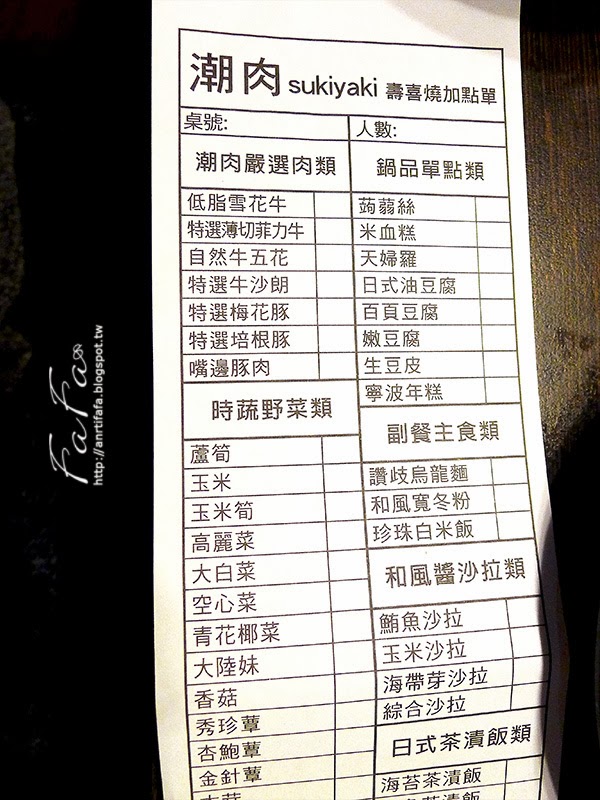 潮肉 sukiyaki 壽喜燒加點單
桌號:
人數:
潮肉嚴選肉類
低脂雪花牛
特選薄切菲力牛
自然牛五花
特選牛沙朗
特選梅花豚
特選培根豚
嘴邊豚肉
時蔬野菜類
蘆筍
玉米
玉米筍
高麗菜
大白菜
空心菜
青花椰菜
大陸妹
香菇
秀珍蕈
杏鮑蕈
金針蕈
鍋品單點類
蒟蒻絲
米血糕
天婦羅
日式油豆腐
百頁豆腐
嫩豆腐
生豆皮
寧波年糕
副餐主食類
讚歧烏龍麵
和風寬冬粉
珍珠白米飯
和風醬沙拉類
鮪魚沙拉
玉米沙拉
海帶芽沙拉
綜合沙拉
日式茶漬飯類
海苔茶漬飯
FaFa
http://anrtifafa.blogspot.tw